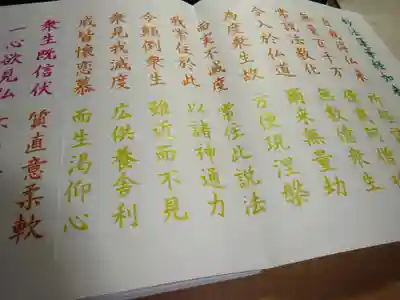 妙法蓮華経如来
自我得仏来 所経諸
無量百千万 億載阿僧
常説法教化 無数億衆生
令入於仏道 爾来無量劫
為度衆生故 方便現涅槃
而実不滅度 常住此説法
我常住於此 以諸神通力
令顛倒衆生 雖近而不見
衆見我滅度 広供養舎利
咸皆懐恋慕 而生渇仰心
衆生既信伏 質直意柔軟
一心欲見仏